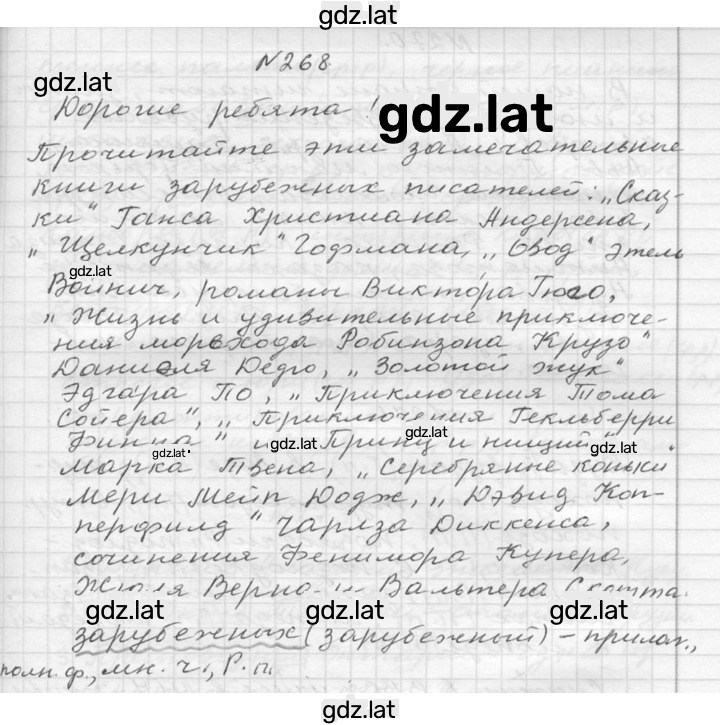 gdz.lat
№268.
gdz.lat
Дорогие ребята!
gdz.lat
Прочитайте эти замечательные
книги зарубежных писателей: „Сказ-
ки" Ганса Христиана Андерсена,
„Щелкунчик" Гофмана, „Овод" Этель
gdz.lat
Войнич, романы Виктора Гюго,
„Жизнь и удивительные приключе-
ния морехода Робинзона Крузо"
Даниеля Дефо, „Золотой жук"
Эдгара По, „Приключения Тома
Сойера", „Приключения Гекльберри
gdz.lat
Финна" и „Принц и нищий"
gdz.lat gdz.lat gdz.lat
Марка Твена, „Серебряные коньки"
Мери Мейп Додж, „Дэвид Коп-
перфилд" Чарлза Диккенса,
сочинения Фенимора Купера,
Жюля Верна и Вальтера Скотта.
gdz.lat gdz.lat gdz.lat
зарубежных (зарубежный) – прилаг.,
полн. ф., мн. ч., Р. п.
gdz.lat